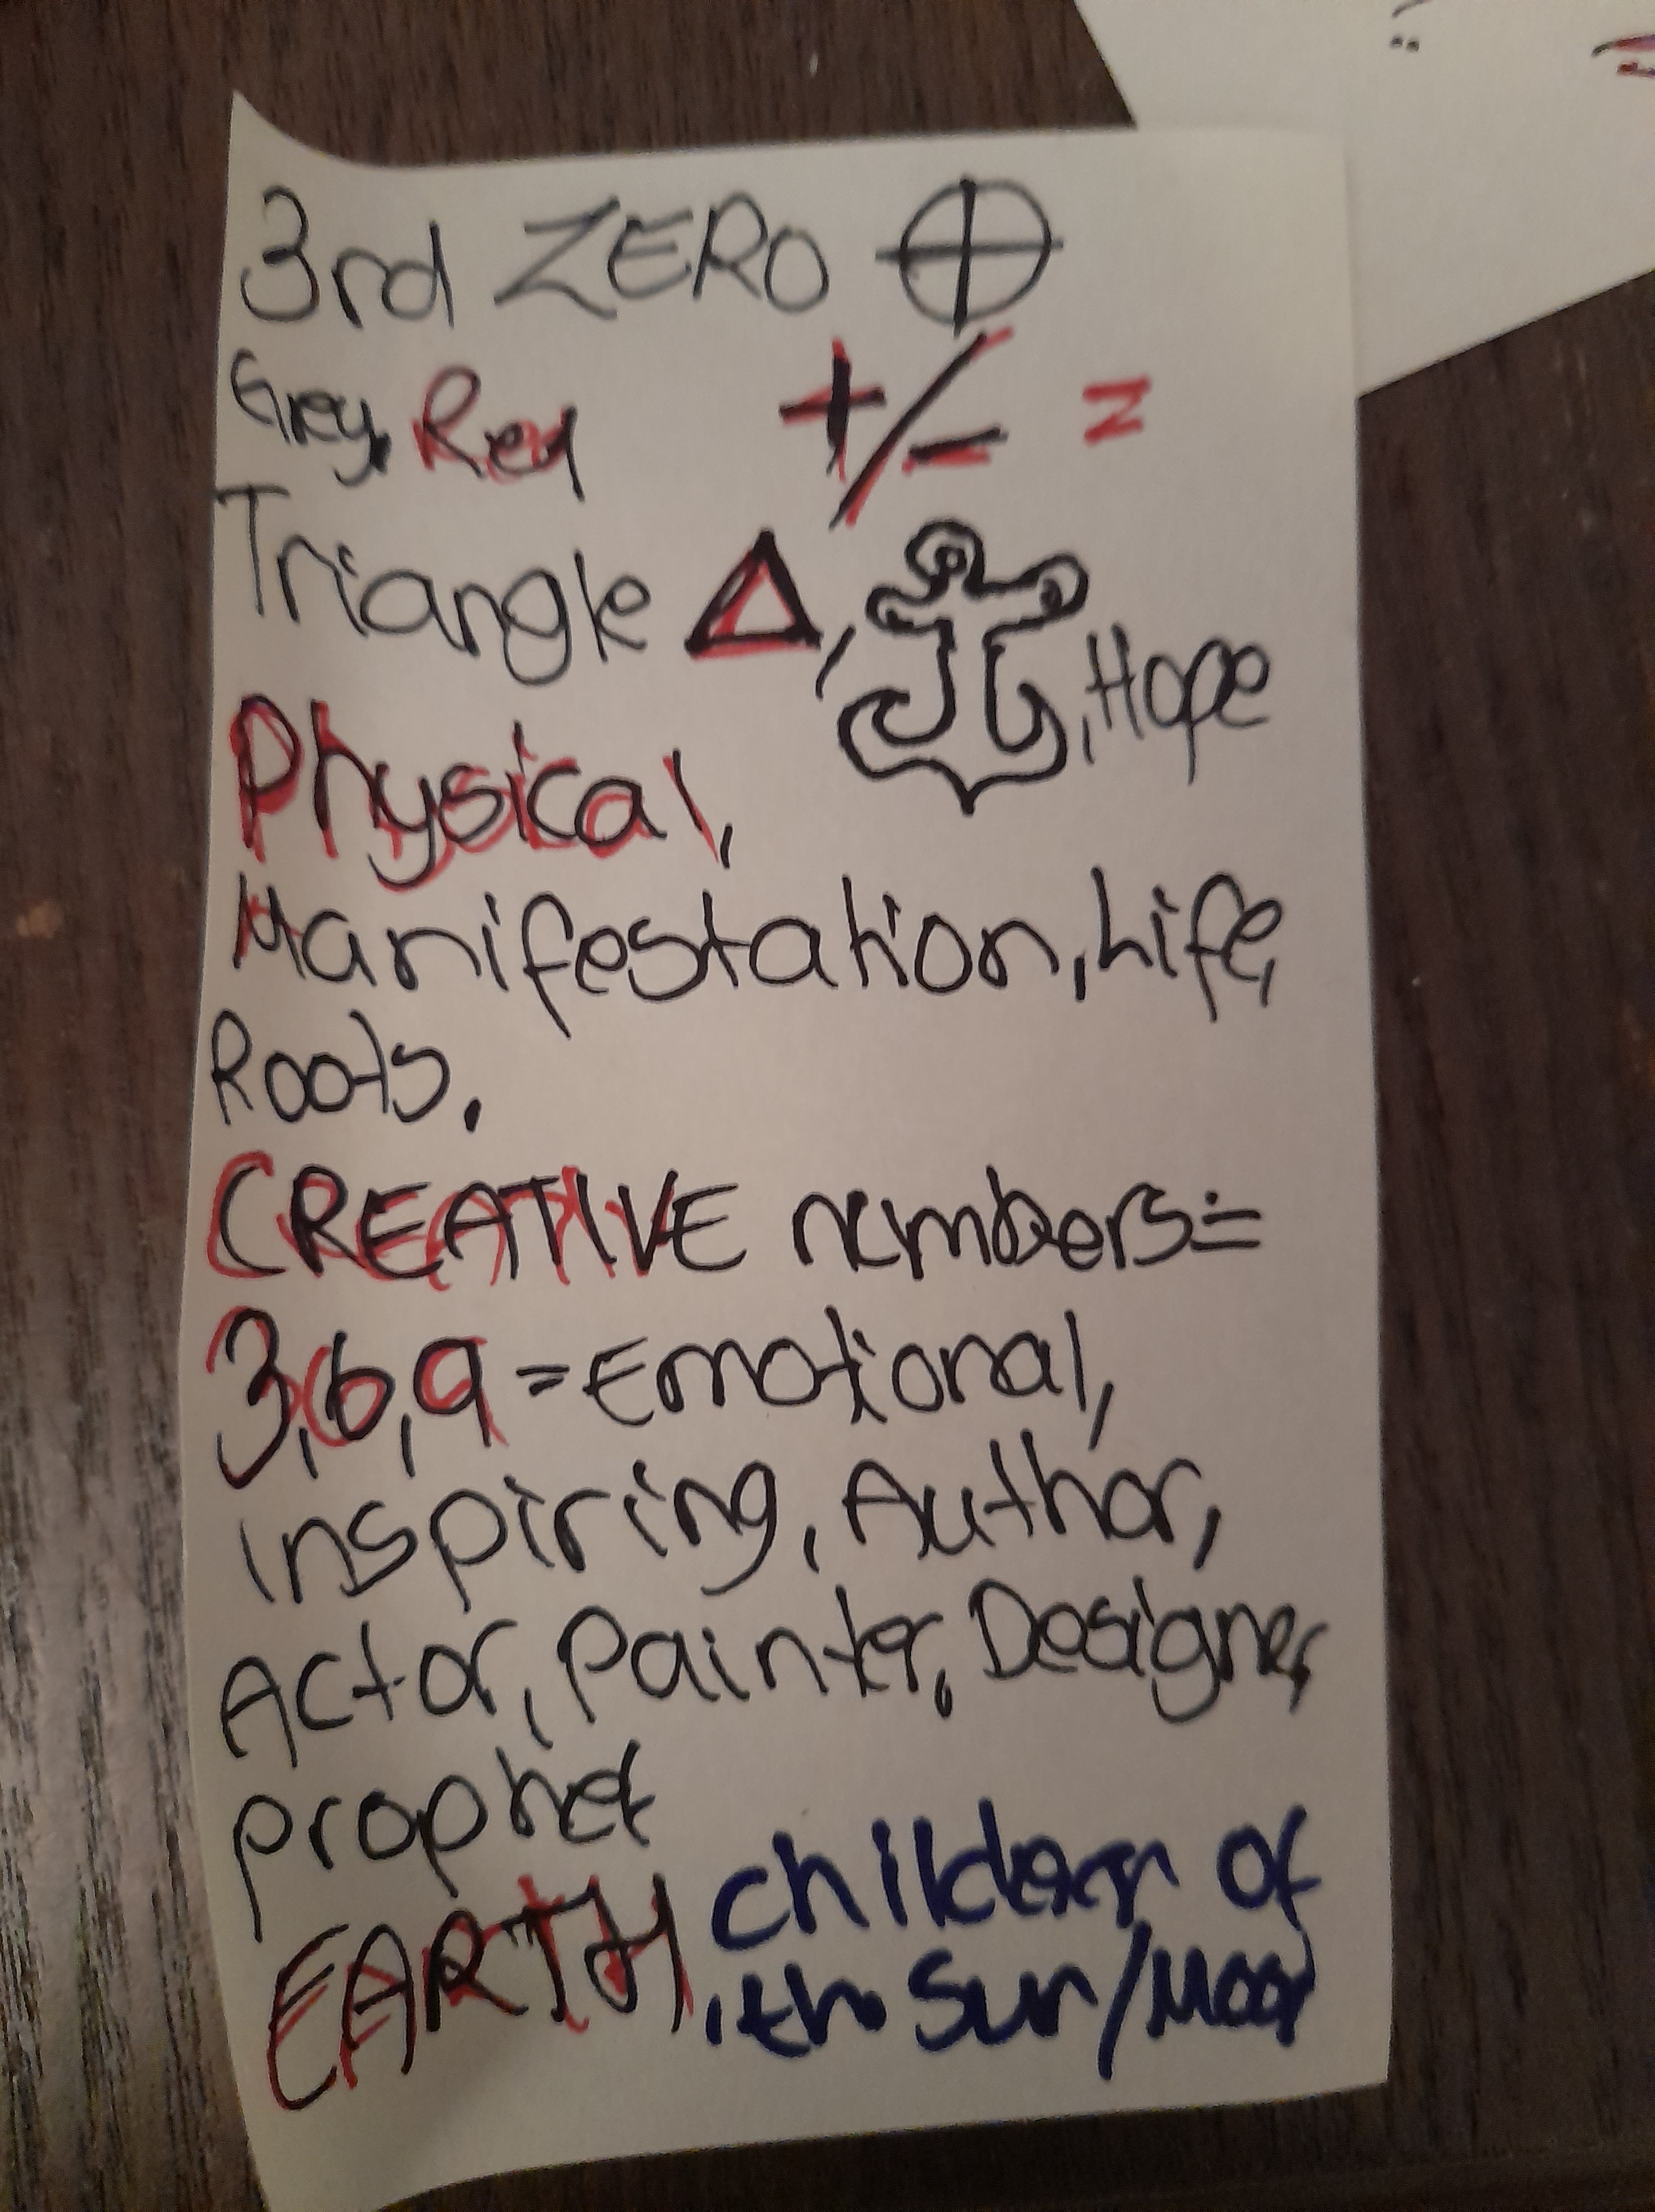 3rd ZERO ⊕
Grey, Red +/- =
Triangle Δ, , Hope
Physical,
Manifestation, Life,
Roots.
CREATIVE numbers:=
3,6,9 = Emotional,
inspiring, Author,
Actor, Painter, Designer,
prophet
EARTH, children of
the Sun/Moon